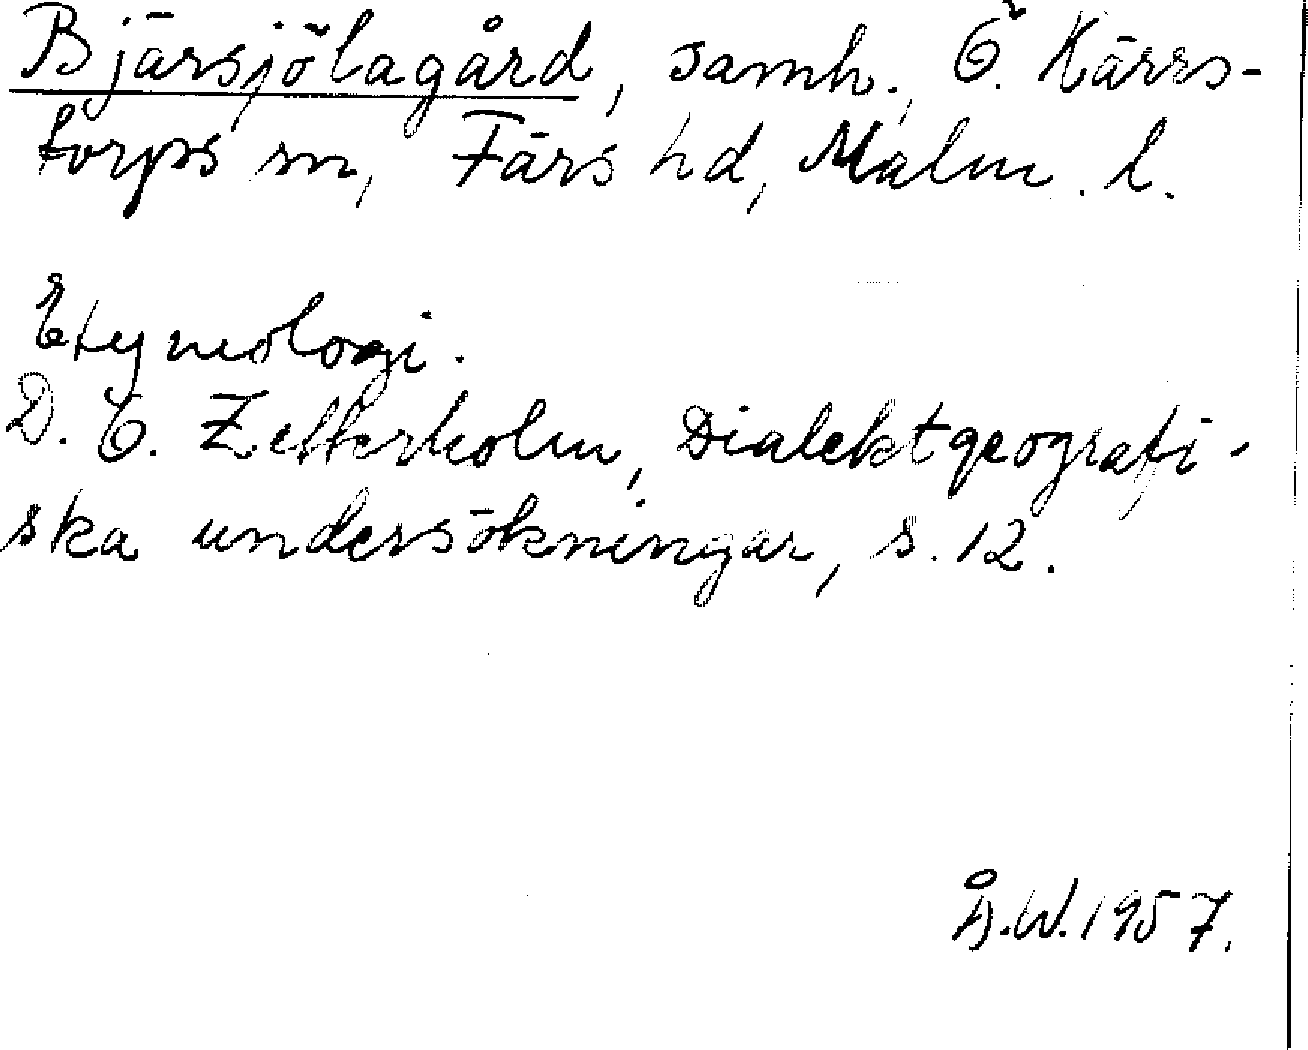 Bjärsjölagård, samh., Ö. Kärrs-
torps sn, Färs hd, Malm. l.
Etymologi.
D. O. Zetterholm, Dialektgeografi-
ska undersökningar, s. 12.
Å.W. 1957.